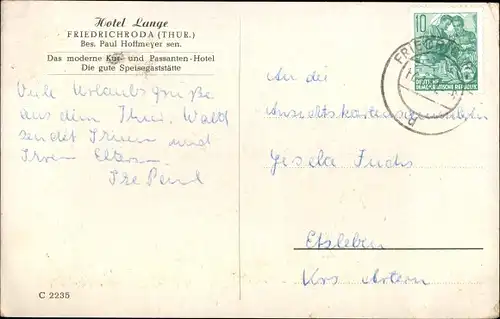 Hotel Lange
FRIEDRICHRODA (THÜR.)
Bes. Paul Hoffmeyer sen.
Das moderne Kur- und Passanten-Hotel
Die gute Speisegaststätte
Viele Urlaubsgrüße
aus dem Thür. Wald
sendet Ihnen und
Ihren Eltern
C 2235
10
DEUTSCHE DEMOKRATISCHE REPUBLIK
An die
Ansichtskartensammlerin
Gisela Fuchs
Etzleben
Krs Artern